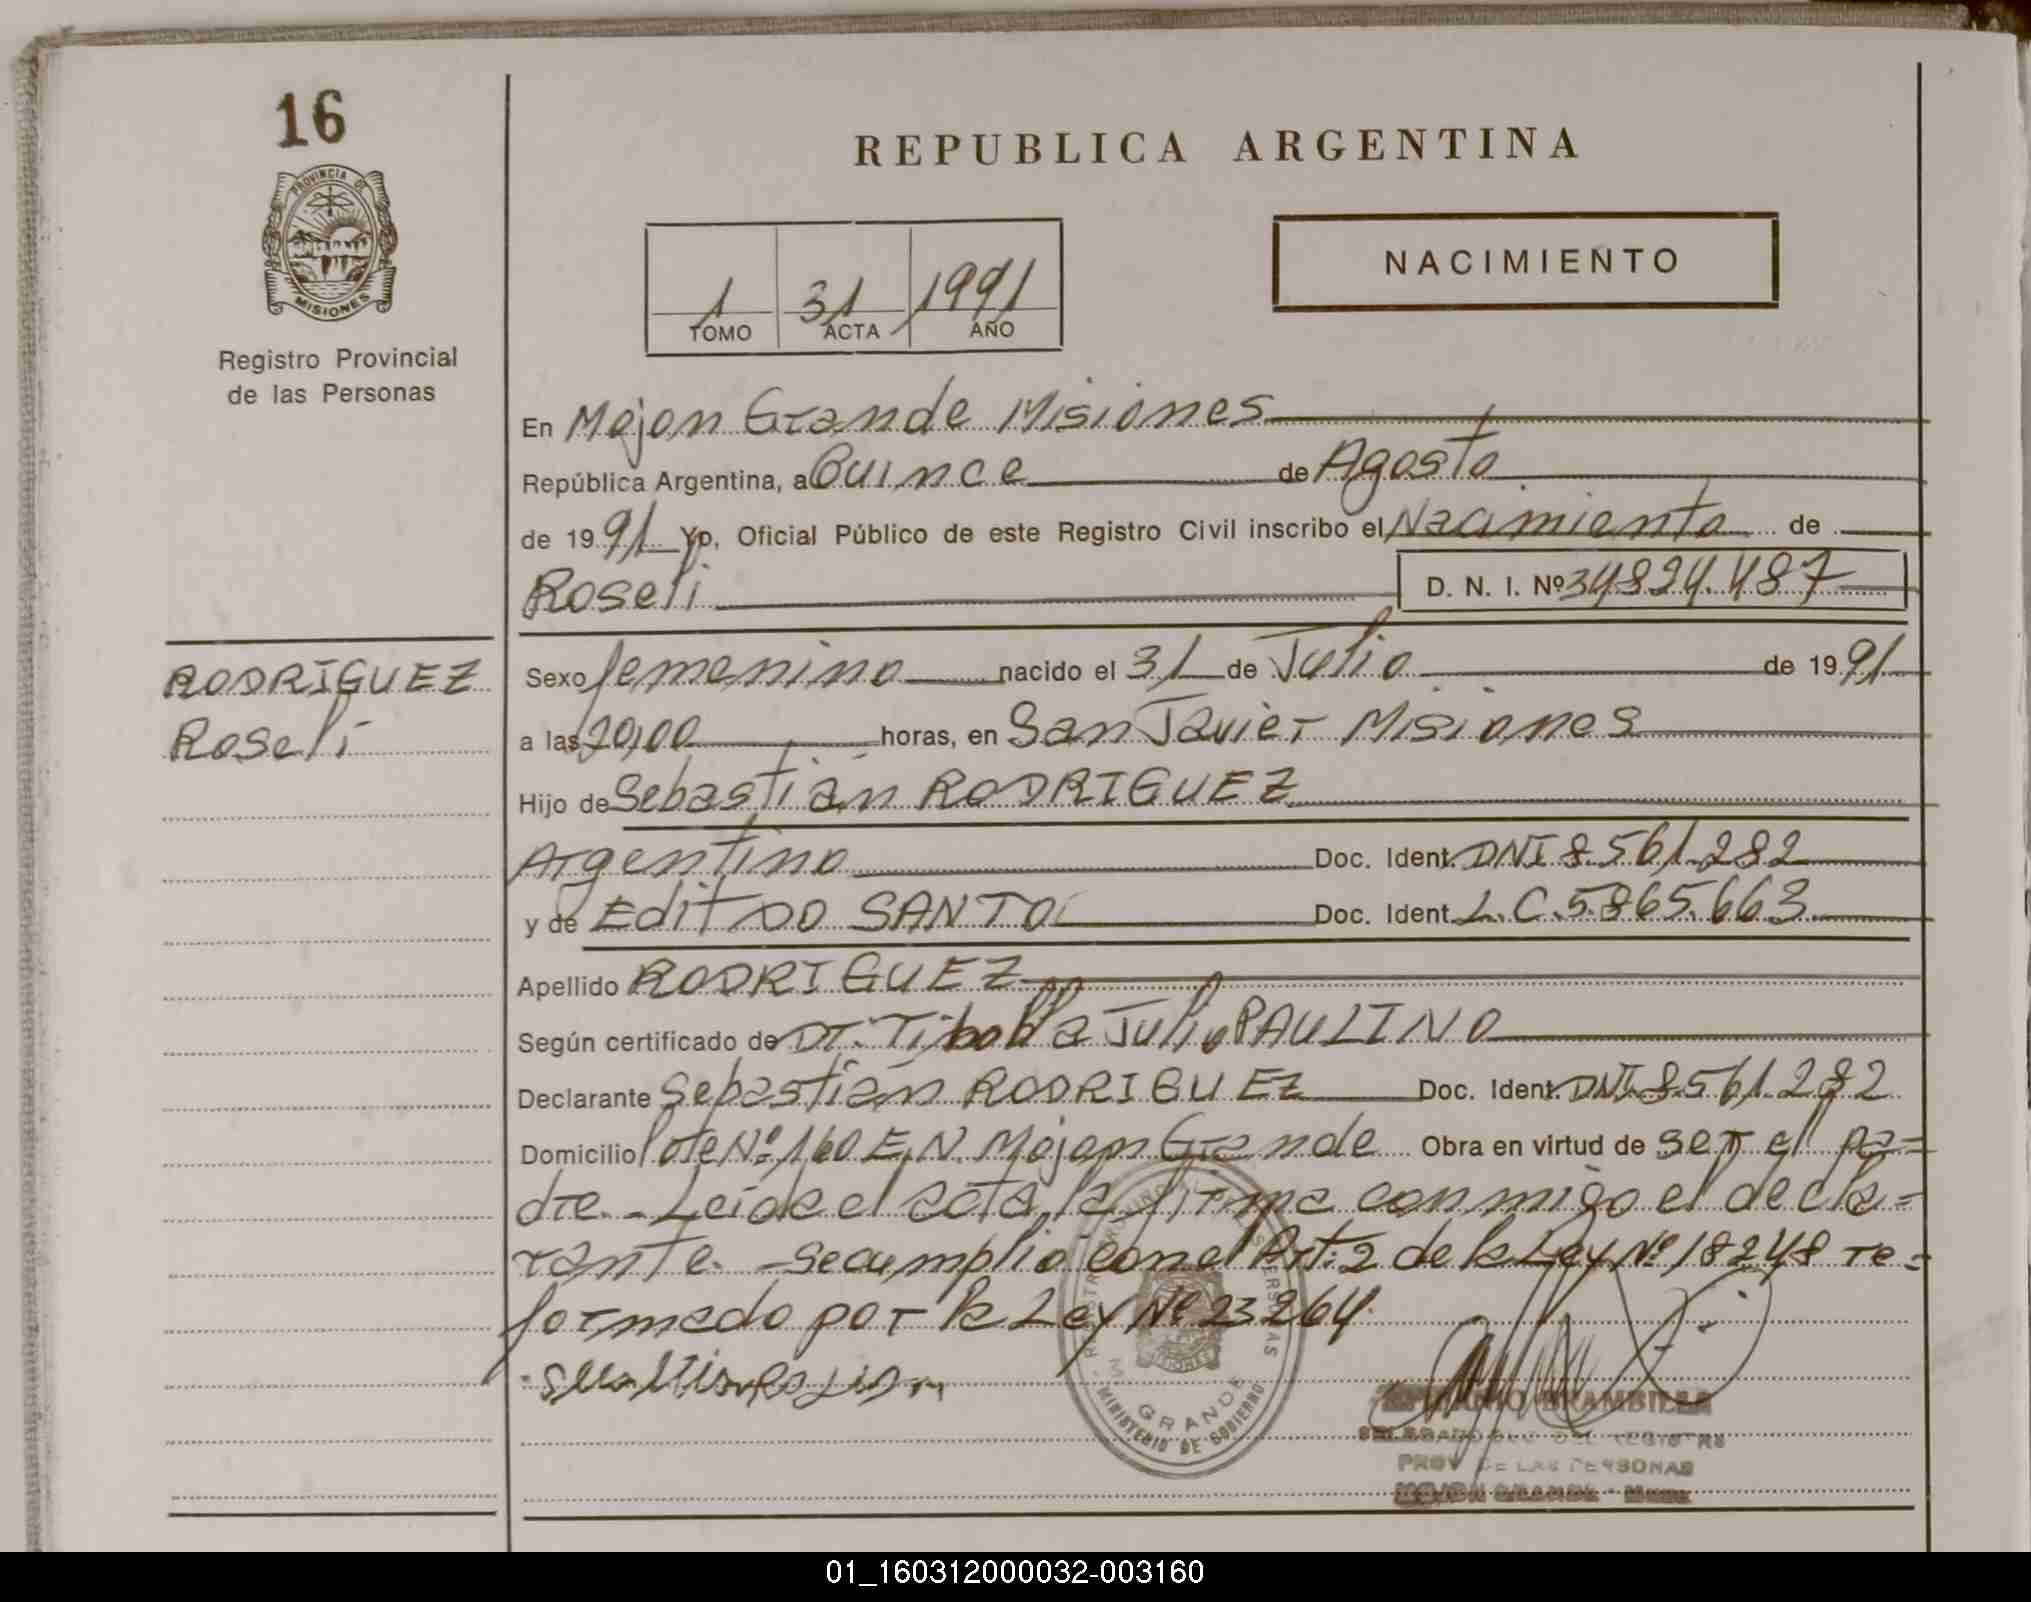 16
PROVINCIA DE
MISIONES
Registro Provincial
de las Personas
REPUBLICA ARGENTINA
NACIMIENTO
1 31 1991
TOMO ACTA AÑO
En Mojon Grande Misiones
República Argentina, a Quince de Agosto
de 1991 Yo, Oficial Público de este Registro Civil inscribo el Nacimiento de
Roseli D. N. I. Nº 34824.487
RODRIGUEZ
Roseli
Sexo femenino nacido el 31 de Julio de 1991
a las 20,00 horas, en San Javier Misiones
Hijo de Sebastián RODRIGUEZ
Argentino Doc. Ident. DNI 8.561.282
y de Edit DO SANTO Doc. Ident. L.C.5.865.663
Apellido RODRIGUEZ
Según certificado de Dr. Tibolla Julio PAULINO
Declarante Sebastián RODRIGUEZ Doc. Ident. DNI.8.561.282
Domicilio lote Nº 160 E.N. Mojon Grande Obra en virtud de ser el pa=
dre. - Leida el acta, la firma conmigo el decla=
rante. - Se cumplio con el Art: 2 de la Ley Nº 18248 re=
formado por la Ley Nº 23264.
GRANDE
MINISTERIO DE GOBIERNO
BRAMBILLA
PROV DE LAS PERSONAS
MOJON GRANDE
01_160312000032-003160